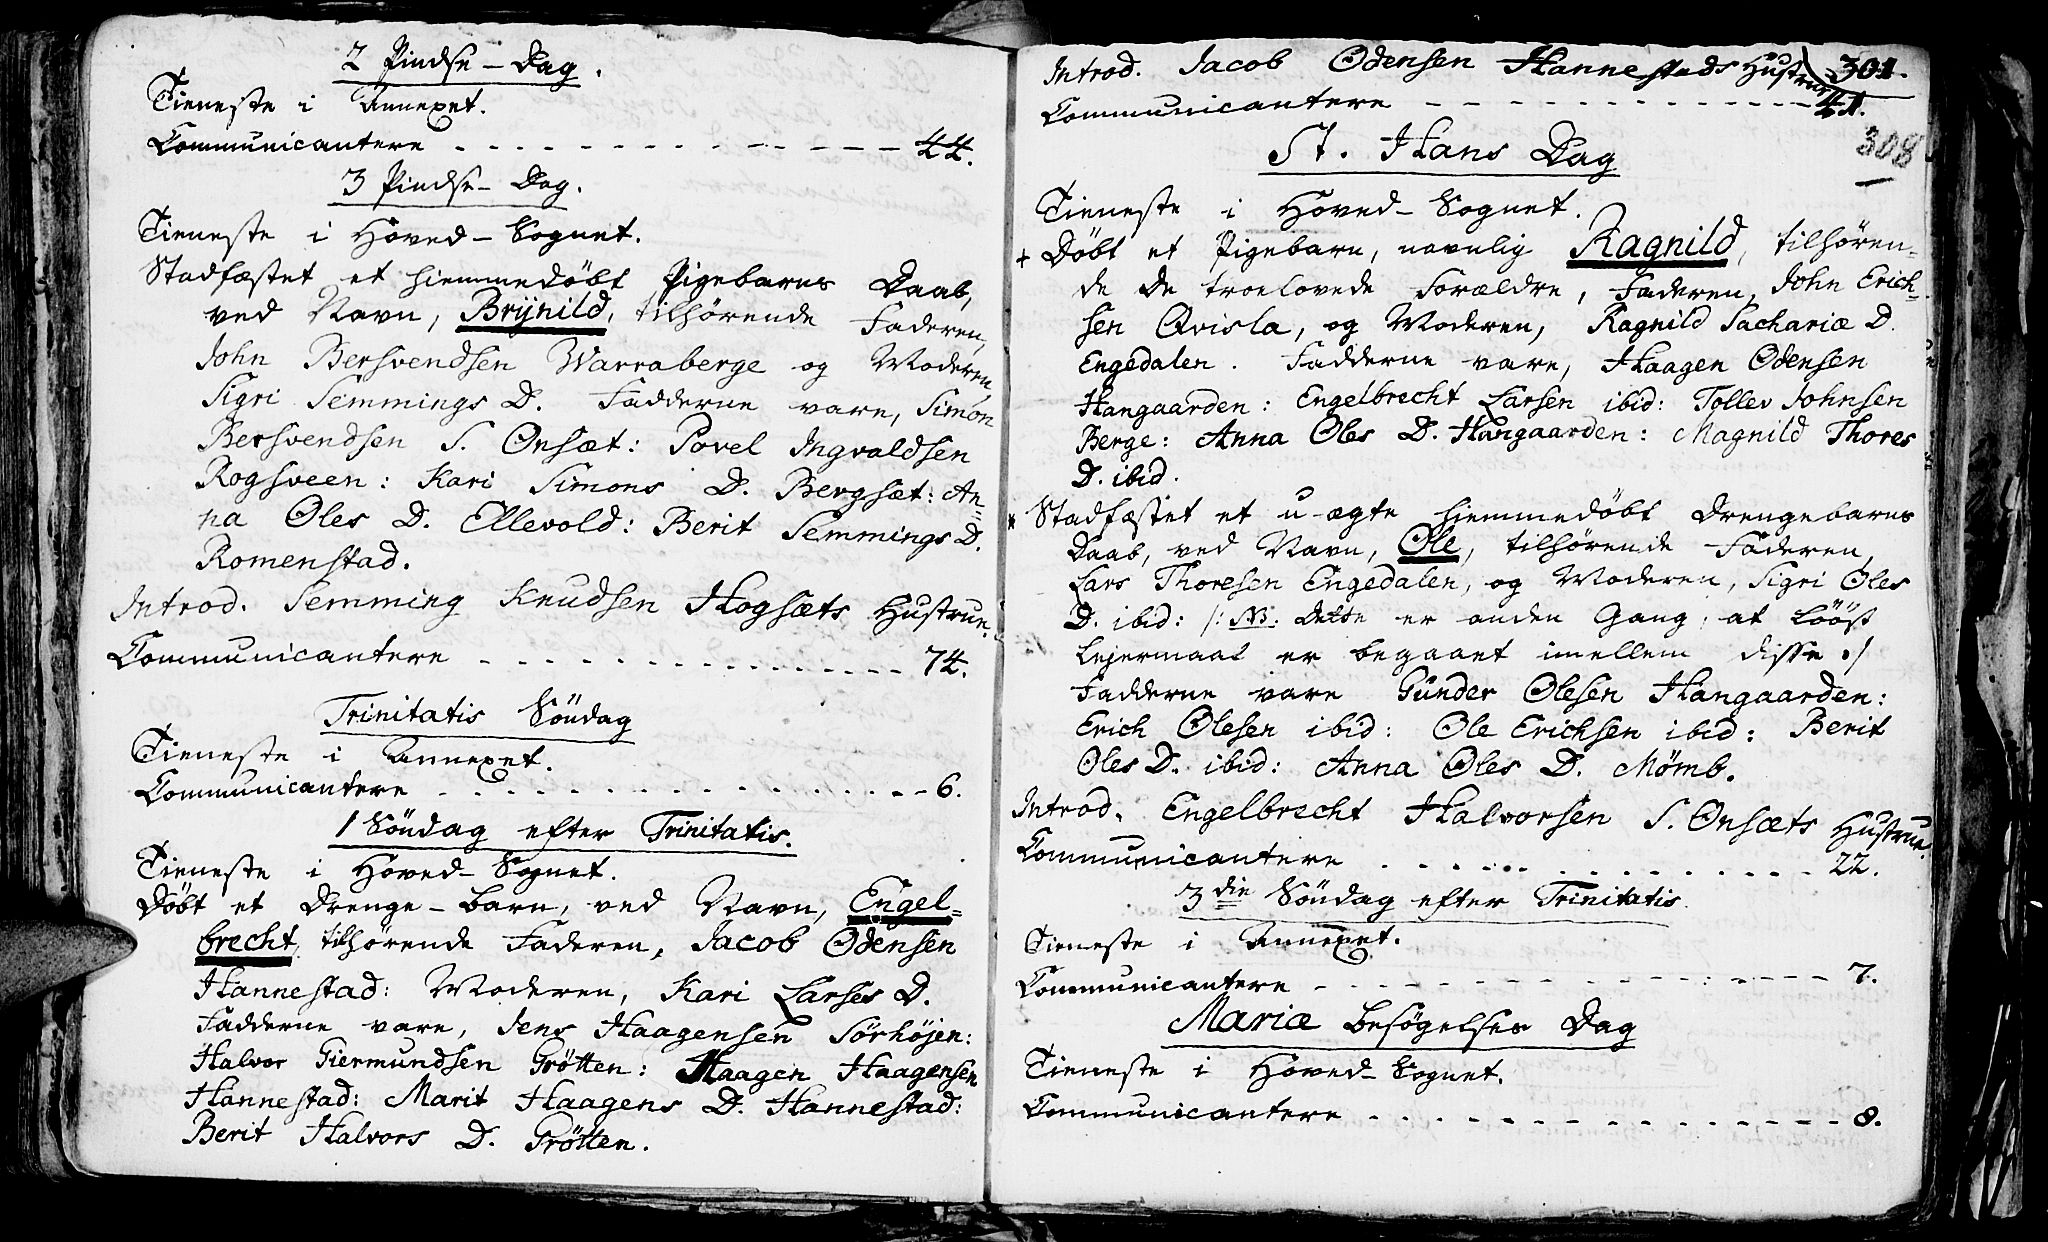 2 Pindse-Dag.
Tieneste i Annexet.
Communicantere - - - 44.
3 Pindse-Dag.
Tieneste i Hoved-Sognet.
Stadfæstet et hiemmedøbt Pigebarns Daab,
ved Navn, Brÿnild, tilhørende Faderen,
John Bersvendsen Warraberge og Moderen
Sigri Semmings D. Fadderne vare, Simon
Bersvendsen S. Onsæt: Povel Ingvaldsen
Rogsveen: Kari Simons D. Bergsæt: An-
na Oles D. Ellevold: Berit Semmings D.
Romenstad.
Introd. Semming Knudsen Hogsæts Hustrue.
Communicantere - - - 74.
Trinitatis Söndag
Tieneste i Annexet.
Communicantere - - - 6.
1 Söndag efter Trinitatis.
Tieneste i Hoved-Sognet.
Døbt et Drenge-barn, ved Navn, Engel-
brecht, tilhørende Faderen, Jacob Odensen
Hannestad: Moderen, Kari Larses D.
Fadderne vare, Jens Haagensen Sörhöjen:
Halvor Giermundsen Grötten: Haagen Haagensen
Hannestad: Marit Haagens D. Hannestad:
Berit Halvors D. Grötten.
Introd. Jacob Odensen Hannestads Hustrue 301.
Communicantere - - - 41.
308
St. Hans Dag
Tieneste i Hoved-Sognet.
+ Døbt et Pigebarn, navnlig Ragnild, tilhøren-
de de troelovede Forældre, Faderen, John Erich-
sen Qvisla, og Moderen, Ragnild Sachariæ D.
Engedalen. Fadderne vare, Haagen Odensen
Hangaarden: Engelbrecht Larsen ibid: Tollev Johnsen
Berge: Anna Oles D. Hangaarden: Magnild Thores
D. ibid.
* Stadfæstet et u-ægte hiemmedøbt Drengebarns
Daab, ved Navn, Ole, tilhørende Faderen,
Lars Thoresen Engedalen, og Moderen, Sigri Oles
D. ibid: /: NB. Dette er anden Gang, at Löös
Lejermaal er begaaet imellem disse :/
Fadderne vare Gunder Olesen Hangaarden:
Erich Olesen ibid: Ole Erichsen ibid: Berit
Oles D. ibid: Anna Oles D. Mömb.
Introd. Engelbrecht Halvorsen S. Onsæts Hustrue.
Communicantere - - - 22.
3die Söndag efter Trinitatis.
Tieneste i Annexet.
Communicantere - - - 7.
Mariæ besøgelses Dag
Tieneste i Hoved-Sognet.
Communicantere - - - 8.